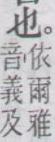 也。
依爾雅
音義及